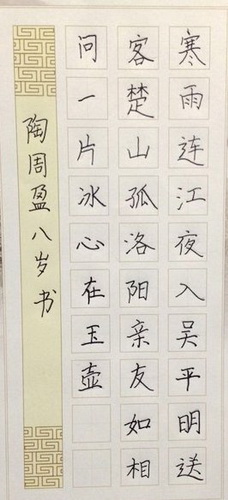 寒雨连江夜入吴平明送
客楚山孤洛阳亲友如相
问一片冰心在玉壶
陶周盈八岁书